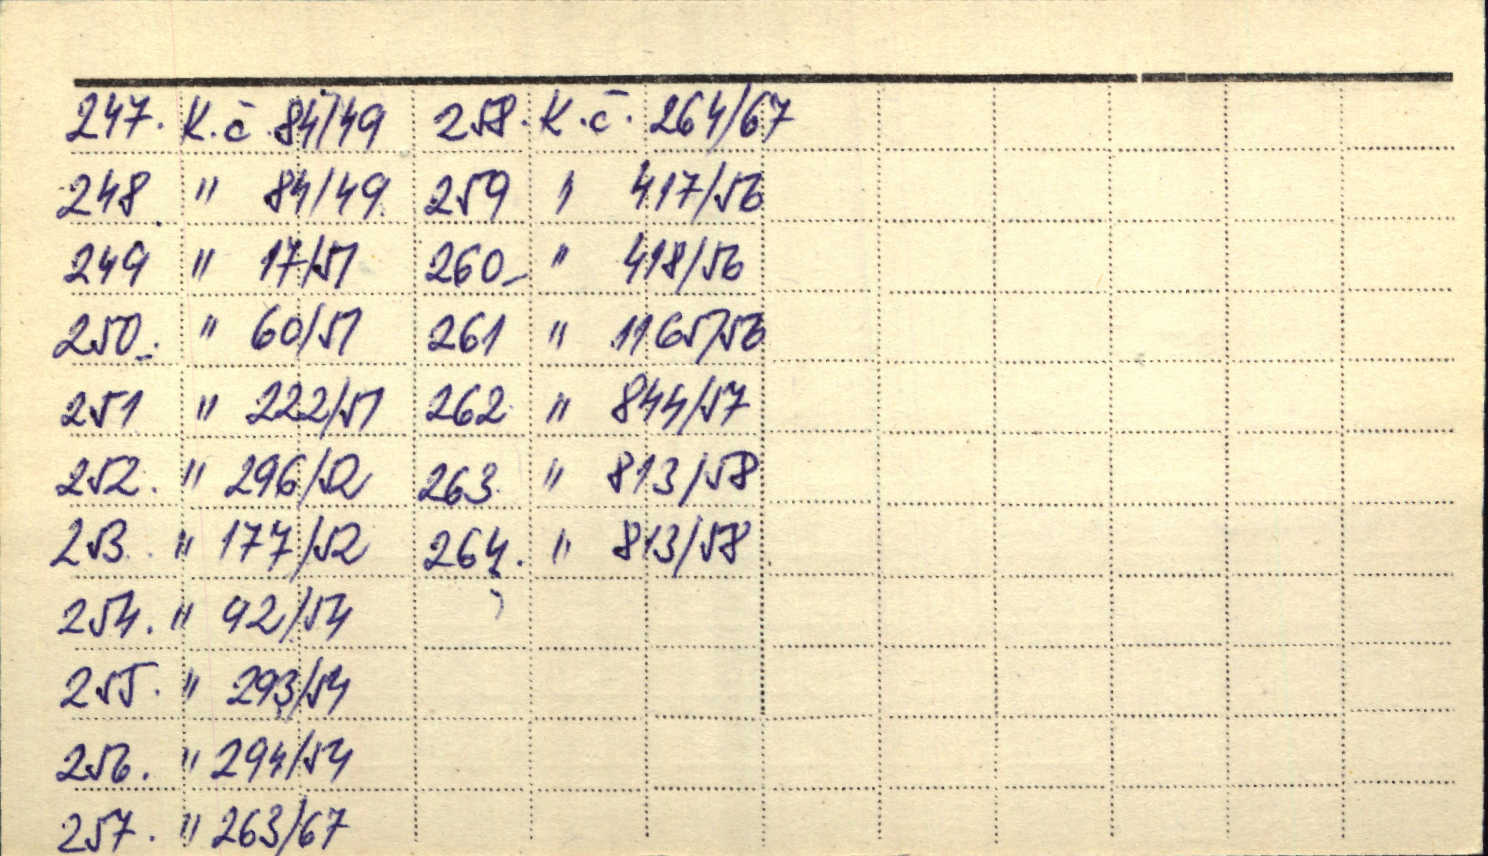 247. K.č. 84/49 258. K.č. 264/67
248 " 84/49 259 " 417/56
249 " 17/51 260 " 418/56
250. " 60/51 261 " 1165/56
251 " 222/51 262 " 844/57
252. " 296/52 263 " 813/58
253. " 177/52 264. " 813/58
254. " 92/54
255. " 293/54
256. " 294/54
257. " 263/67